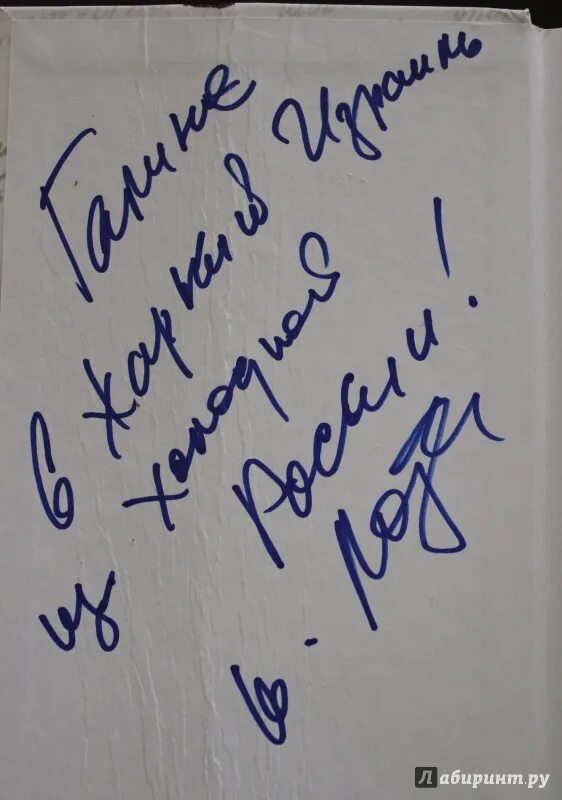 Галине
в жаркий Израиль
из холодной
России!
в.
Лабиринт.ру